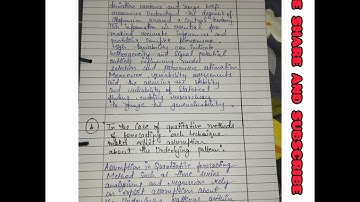 deviation variance and range help
researchers understand the degree of
dispersion around a central tendency
This information is essential for
making accurate inferences and
predicting complex phenomena
High variability can indicate
heterogeneity and signal potential
outliers influencing model
selection and parameter estimation
Moreover variability assessments
aid in assessing the stability
and reliability of statistical
findings enabling researchers
to gauge the generalizability.
b
In the case of qualitative methods
of forecasting each technique
makes explicit assumption
about the underlying pattern.
Assumption in Quantitative forecasting
Method Such as time series
analysis and regression rely
on explicit assumption about
the underlying patterns within
E SHARE AND SUBSCRIBE